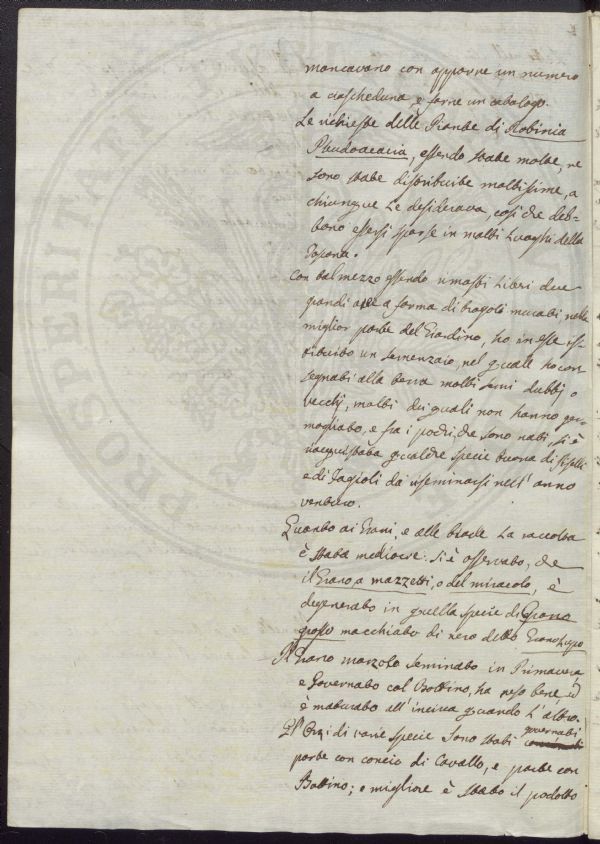 mancavano con apporre un numero
a ciascheduna, e farne un catalogo.
Le richieste delle Piante di Robinia
Pseudoacacia, essendo state molte, ne
sono state distribuite moltissime, a
chiunque le desiderava, così che deb-
bono essersi sparse in molti Luoghi della
Toscana.
Con tal mezzo essendo rimasti liberi due
grandi a forma di bragolé murati nella
miglior parte del Giardino, ho in esse isti-
tuito un semenzaio, nel quale ho con
segnati alla terra molti semi dubbj, o
vecchj, molti dei quali non hanno ger-
mogliato, e fra i pochi, che sono nati, si è
riacquistata qualche specie buona di Piselli
e di Fagioli da riseminarsi nell' anno
venturo.
Quanto ai Grani, e alle biade la raccolta
è stata mediocre. Si è osservato, che
il Grano a mazzetti, o del miracolo, è
degenerato in quella specie di Grano
grosso macchiato di nero detto Grano Lupo
Il Grano marzolo seminato in Primavera
e Governato col Bottino, ha reso bene, ed
è maturato all'incirca quando l'altro.
Gl' Orzi di varie specie sono stati governati
parte con concio di Cavallo, e parte con
Bottino; e migliore è stato il prodotto